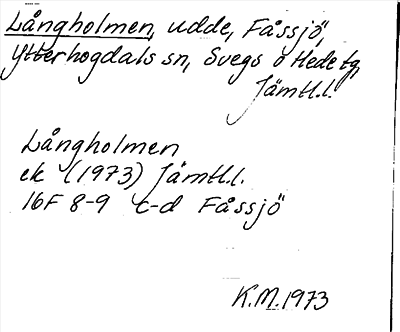 Långholmen, udde, Fåssjö,
Ytterhogdals sn, Svegs o Hede tg,
Jämtl.l.
Långholmen
ek (1973) Jämtl.l.
16F 8-9 c-d Fåssjö
K.M. 1973